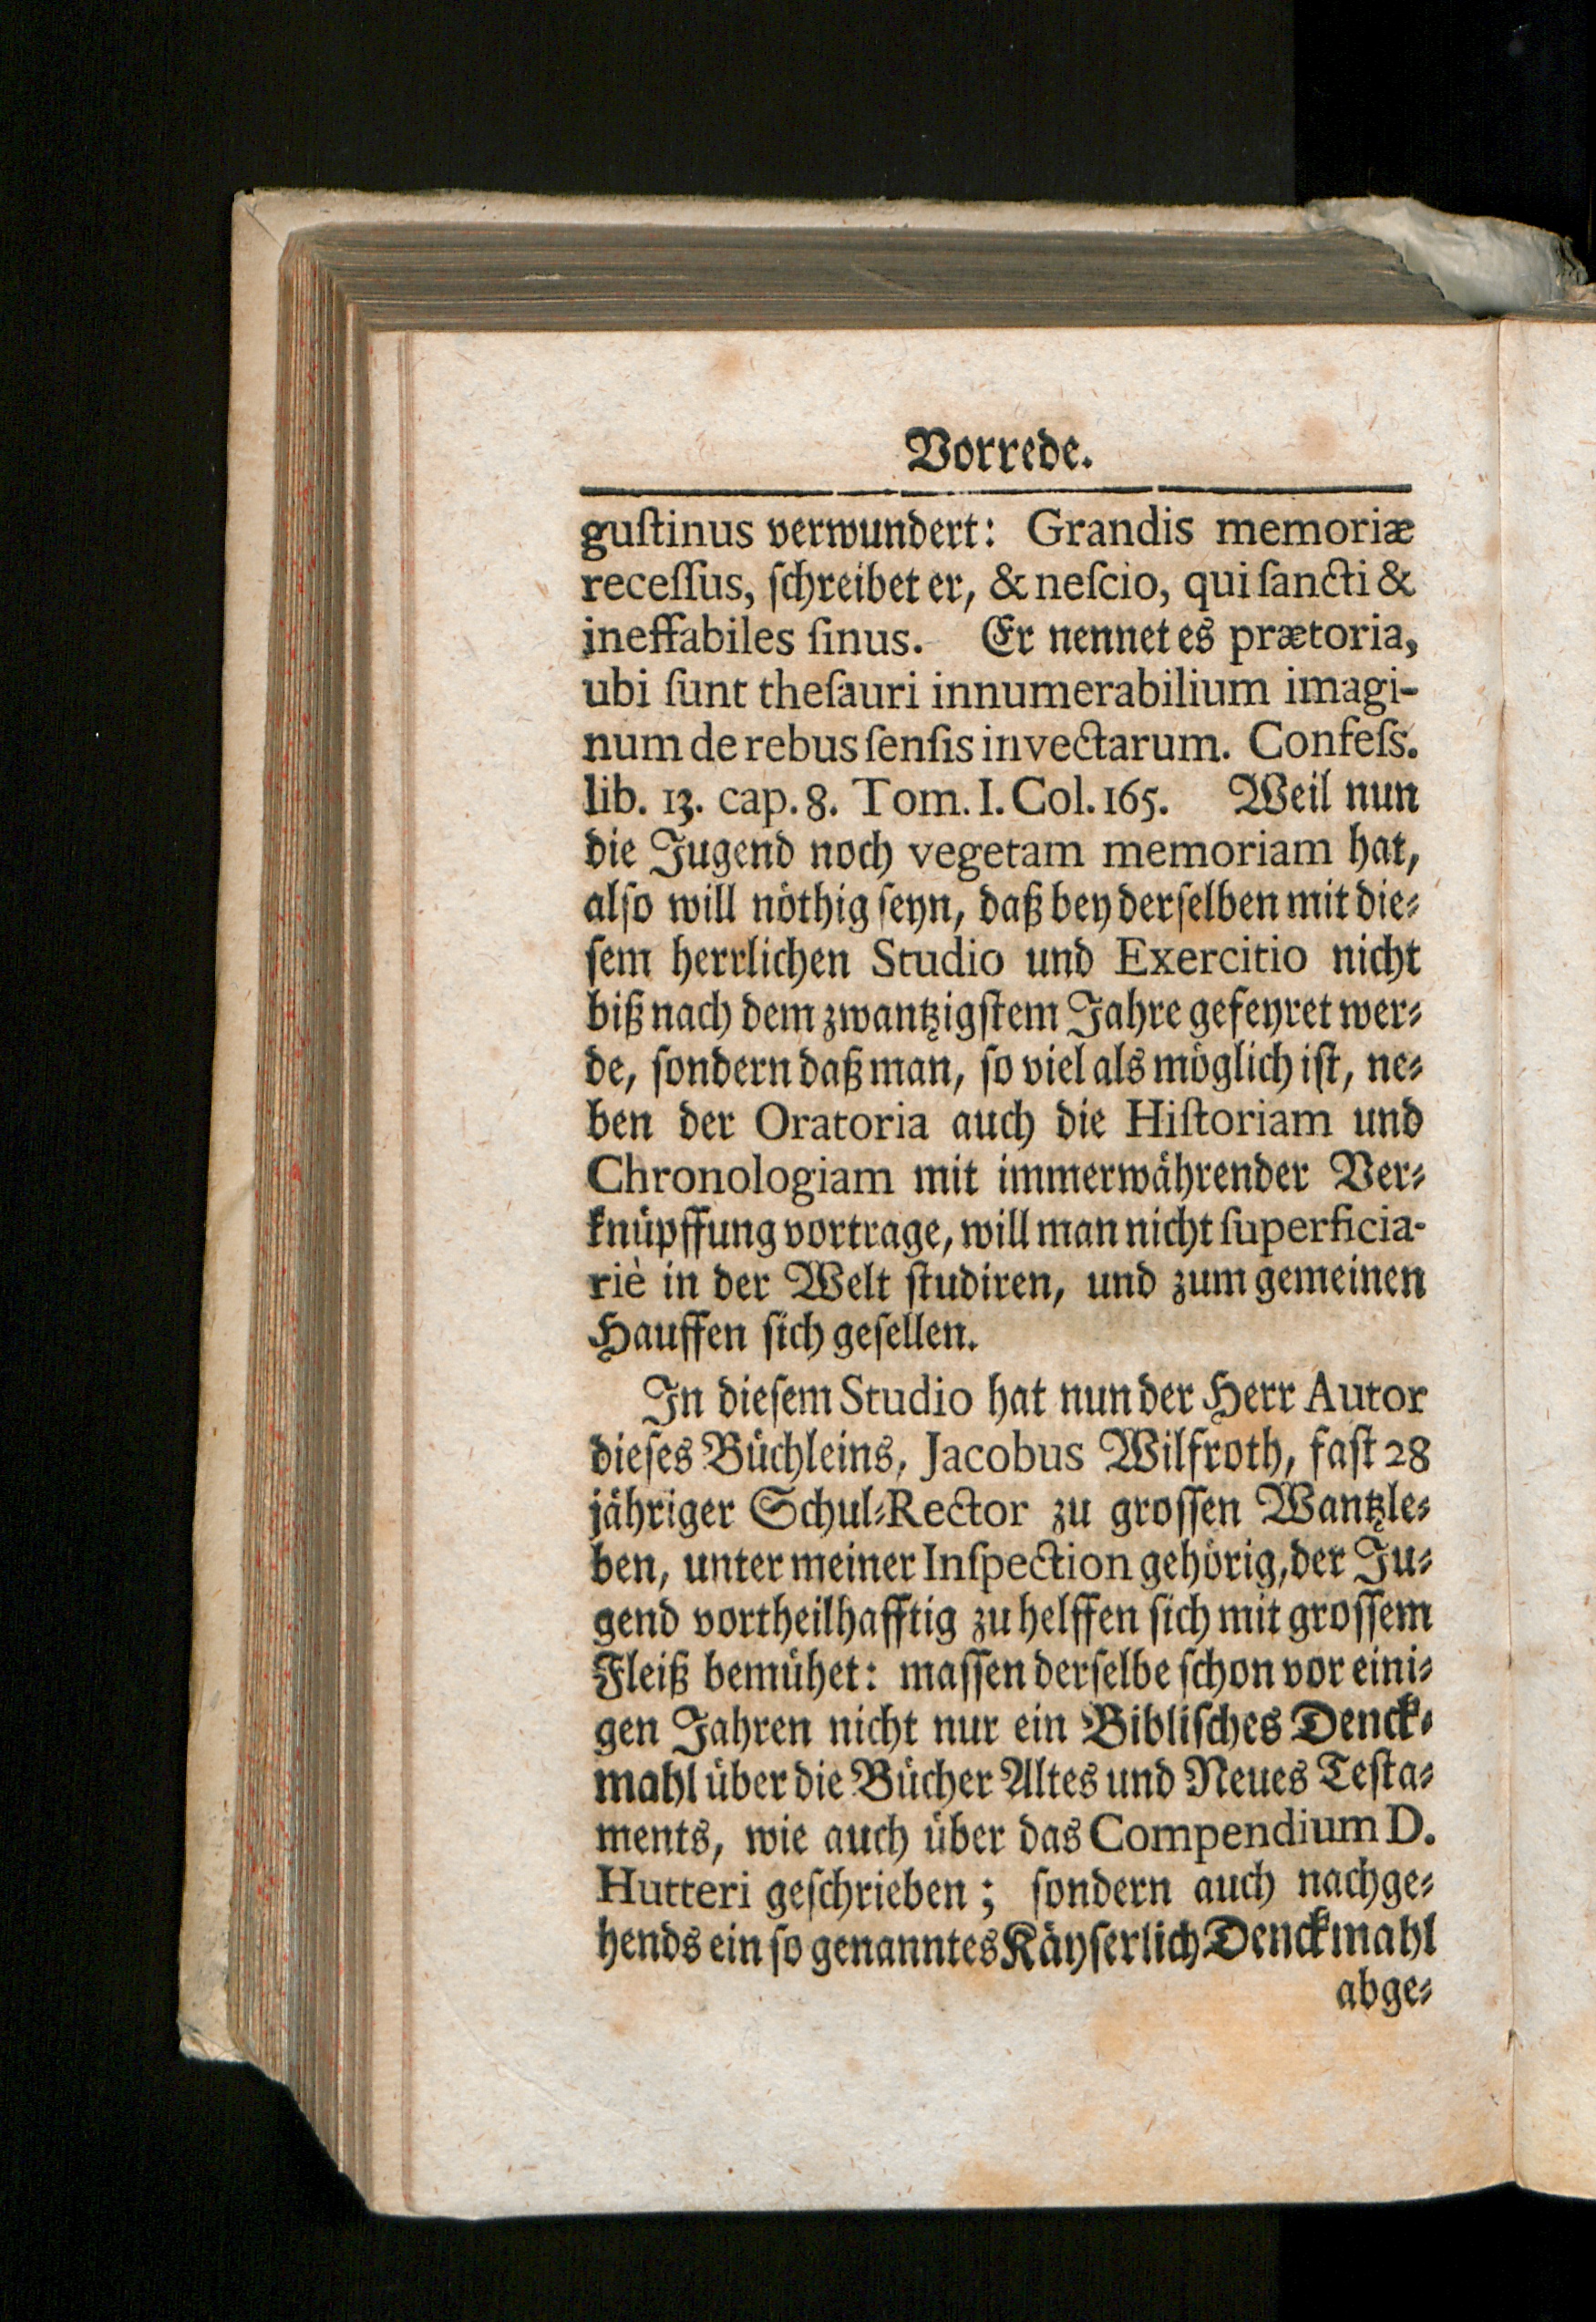 Vorrede.
guſtinus verwundert: Grandis memoriæ
receſſus, ſchreibet er, & neſcio, qui ſancti &
ineffabiles ſinus. Er nennet es prætoria,
ubi ſunt theſauri innumerabilium imagi-
num de rebus ſenſis invectarum. Confeſs.
lib. 13. cap. 8. Tom. I. Col. 165. Weil nun
die Jugend noch vegetam memoriam hat,
alſo will nöthig ſeyn, daß bey derſelben mit die⸗
ſem herrlichen Studio und Exercitio nicht
biß nach dem zwantzigſtem Jahre gefeyret wer⸗
de, ſondern daß man, ſo viel als möglich iſt, ne⸗
ben der Oratoria auch die Hiſtoriam und
Chronologiam mit immerwährender Ver⸗
knüpffung vortrage, will man nicht ſuperficia-
riè in der Welt ſtudiren, und zum gemeinen
Hauffen ſich geſellen.
In dieſem Studio hat nun der Herr Autor
dieſes Büchleins, Jacobus Wilfroth, faſt 28
jähriger Schul⸗Rector zu groſſen Wantzle⸗
ben, unter meiner Inſpection gehörig, der Ju⸗
gend vortheilhafftig zu helffen ſich mit groſſem
Fleiß bemühet: maſſen derſelbe ſchon vor eini⸗
gen Jahren nicht nur ein Bibliſches Denck⸗
mahl über die Bücher Altes und Neues Teſta⸗
ments, wie auch über das Compendium D.
Hutteri geſchrieben; ſondern auch nachge⸗
hends ein ſo genanntes Käyſerlich Denckmahl
abge⸗